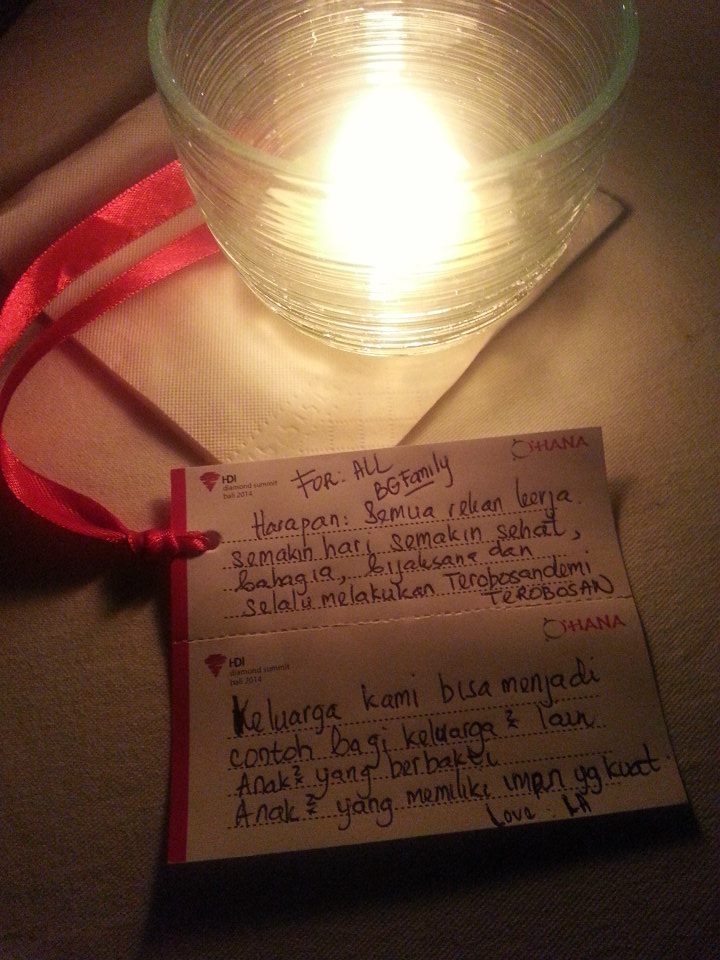 HDI
diamond summit
bali 2014
OHANA
FOR: ALL
BG Family
Harapan: Semua rekan kerja
semakin hari semakin sehat,
bahagia, bijaksana dan
selalu melakukan Terobosan demi
TEROBOSAN
HDI
diamond summit
bali 2014
OHANA
Keluarga kami bisa menjadi
contoh bagi keluarga² lain
Anak² yang berbakti
Anak² yang memiliki impn yg kuat
Love: LA